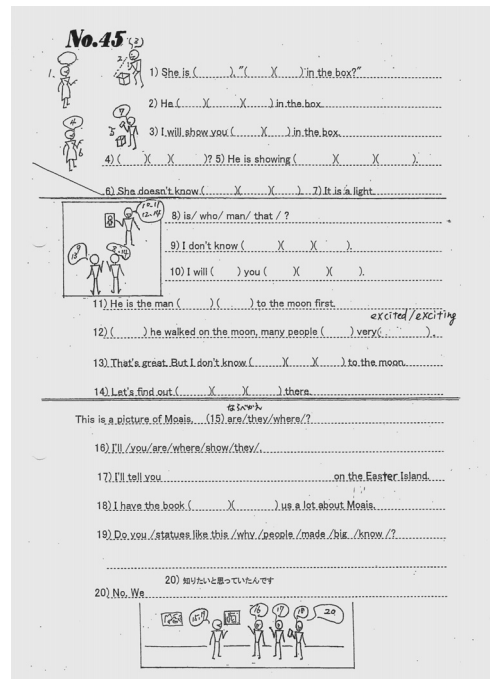 No.45
1) She is (      ). "(      )(      ) in the box?"
2) He (      )(      )(      ) in the box.
3) I will show you (      )(      ) in the box.
4) (      )(      )(      )? 5) He is showing (      )(      )(      ).
6) She doesn't know (      )(      )(      ). 7) It is a light.
8) is/ who/ man/ that / ?
9) I don't know (      )(      )(      ).
10) I will (      ) you (      )(      )(      ).
11) He is the man (      ) (      ) to the moon first.
excited/exciting
12) (      ) he walked on the moon, many people (      ) very(      ).
13) That's great. But I don't know (      )(      )(      ) to the moon.
14) Let's find out (      )(      )(      ) there.
ならべかえ
This is a picture of Moais. (15) are/they/where/?
16) I'll /you/are/where/show/they/.
17) I'll tell you                on the Easter Island.
18) I have the book (      )(      ) us a lot about Moais.
19) Do you /statues like this /why /people /made /big /know /?
20) 知りたいと思っていたんです
20) No. We
16 17 18 20